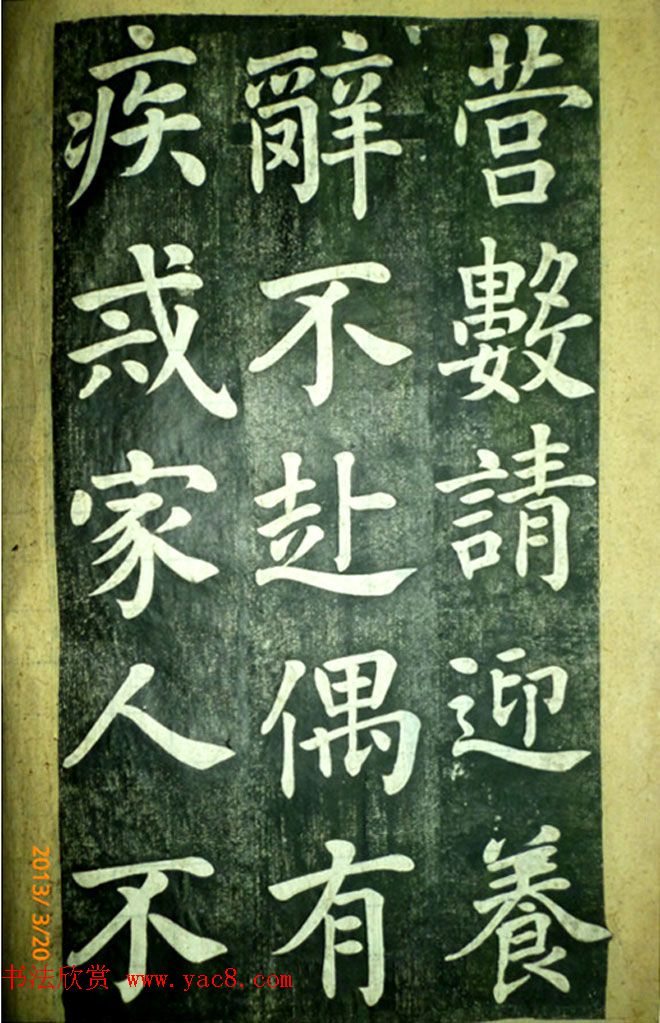 营數請迎養
辭不赴偶有
疾戒家人不
2013/ 3/20
书法欣赏 www.yac8.com